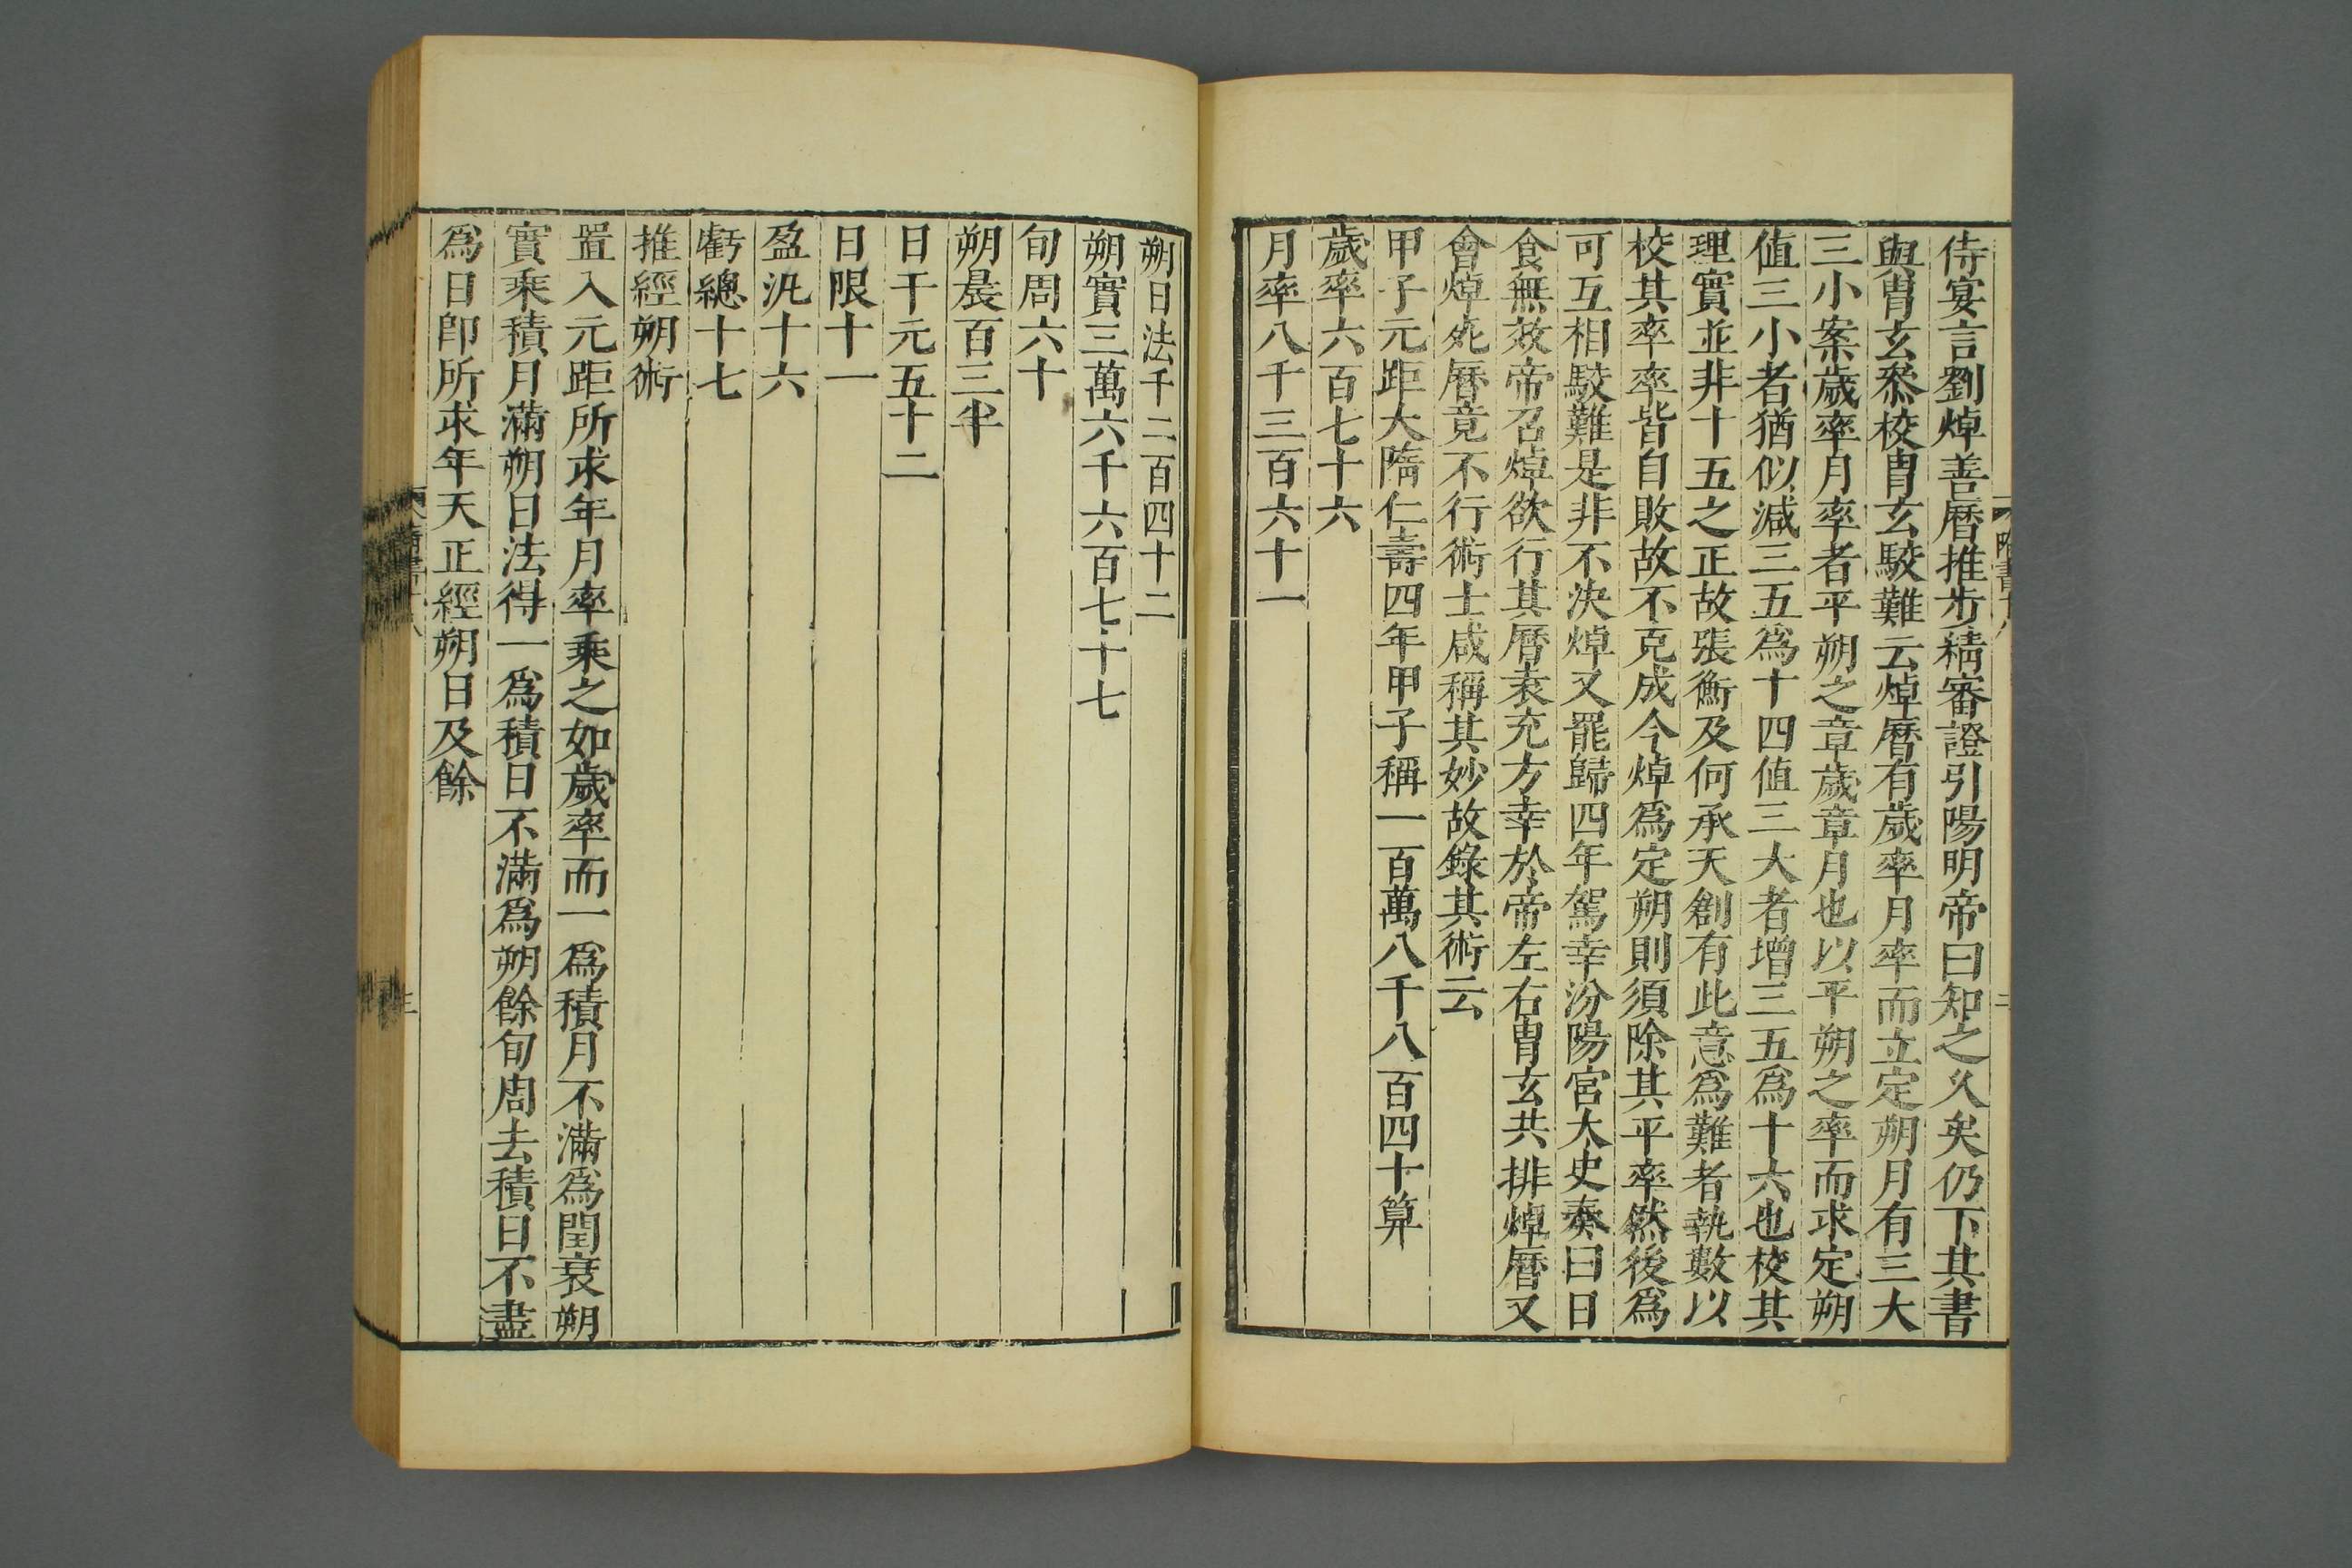 侍宴言劉焯善曆推步精審證引陽明帝曰知之久矣仍下其書
與胄玄叅校胄玄駮難云焯曆有歲率月率而立定朔月有三大
三小案歲率月率者平朔之章歲章月也以平朔之率而求定朔
值三小者猶似減三五爲十四值三大者增三五爲十六也校其
理實並非十五之正故張衡及何承天創有此意爲難者執數以
校其率率皆自敗故不克成今焯爲定朔則須除其平率然後爲
可互相駮難是非不決焯又罷歸四年駕幸汾陽宮大史奏曰日
食無效帝召焯欲行其曆袁充方幸於帝左右胄玄共排焯曆又
會焯死曆竟不行術士咸稱其妙故錄其術云
甲子元距大隋仁壽四年甲子稱一百萬八千八百四十算
歲率六百七十六
月率八千三百六十一
朔日法千二百四十二
朔實三萬六千六百七十七
旬周六十
朔晨百三半
日干元五十二
日限十一
盈汎十六
虧總十七
推經朔術
置入元距所求年月率乘之如歲率而一爲積月不滿爲閏衰朔
實乘積月滿朔日法得一爲積日不滿爲朔餘旬周去積日不盡
爲日卽所求年天正經朔日及餘
三